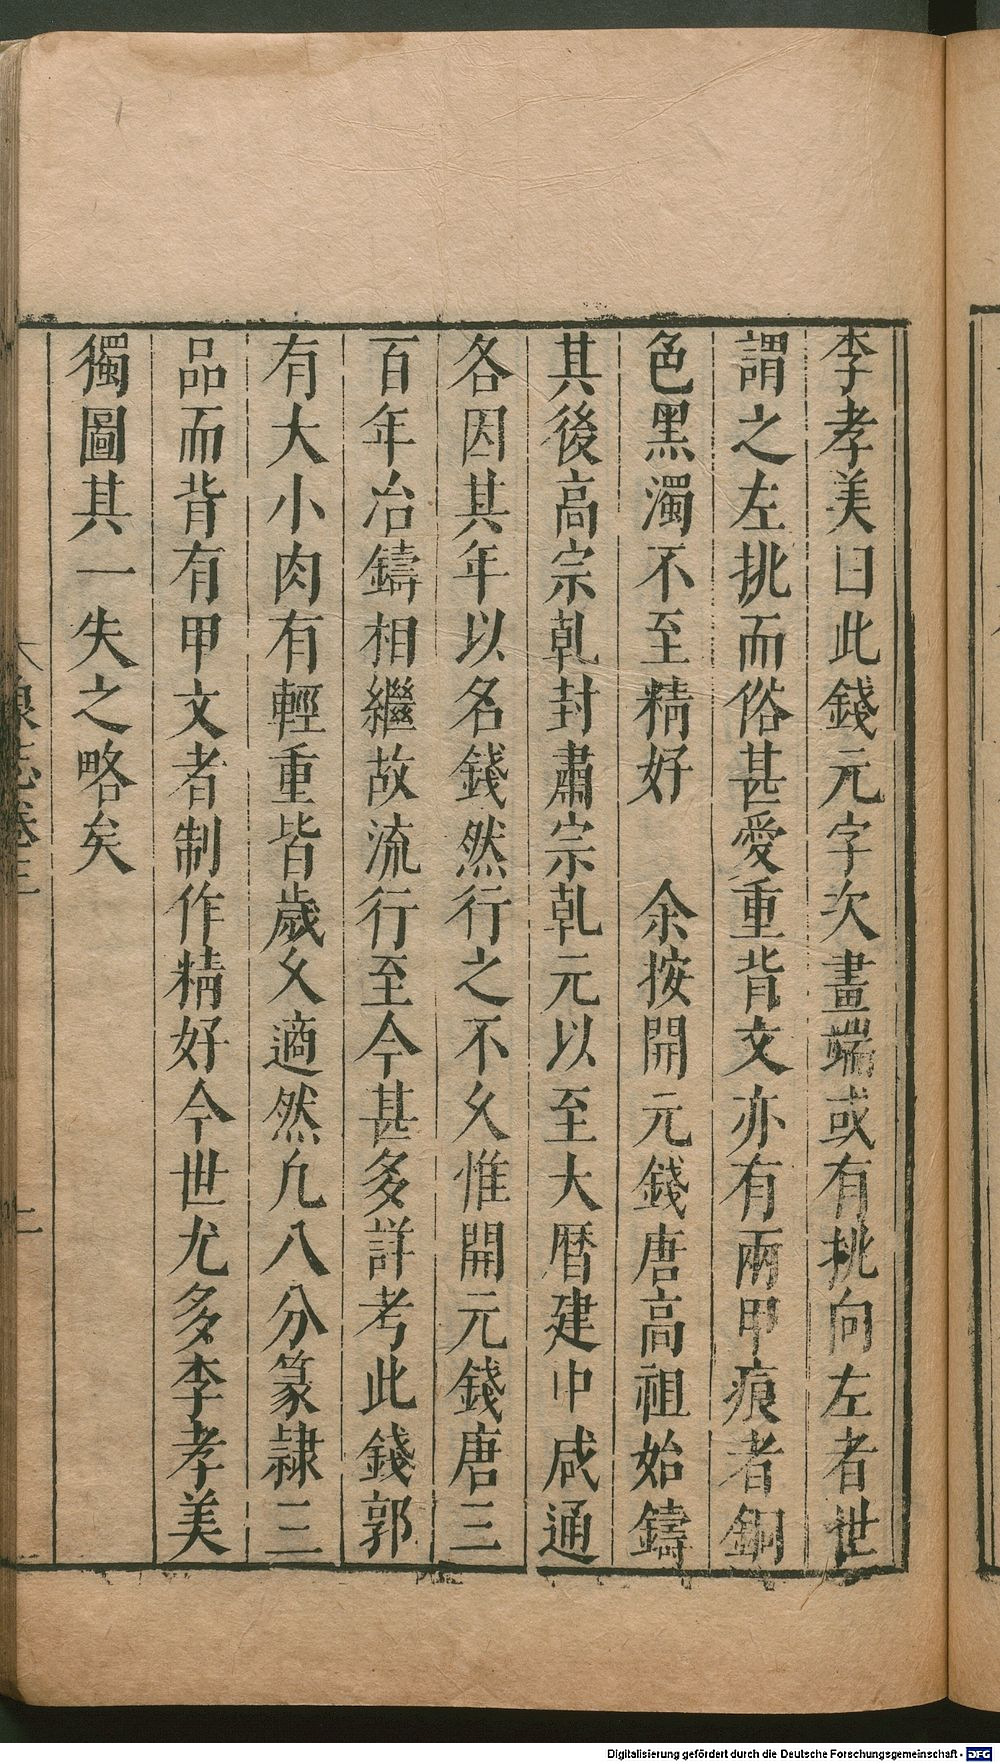 李孝美曰此錢元字次畫端或有挑向左者世
謂之左挑而俗甚愛重背文亦有兩甲痕者銅
色黑濁不至精好　余按開元錢唐高祖始鑄
其後高宗乹封肅宗乹元以至大曆建中咸通
各因其年以名錢然行之不乆惟開元錢唐三
百年冶鑄相繼故流行至今甚多詳考此錢郭
有大小肉有輕重皆歲乆適然凢八分篆隷三
品而背有甲文者制作精好今世尤多李孝美
獨圖其一失之略矣
泉志卷三
二
Digitalisierung gefördert durch die Deutsche Forschungsgemeinschaft - DFG